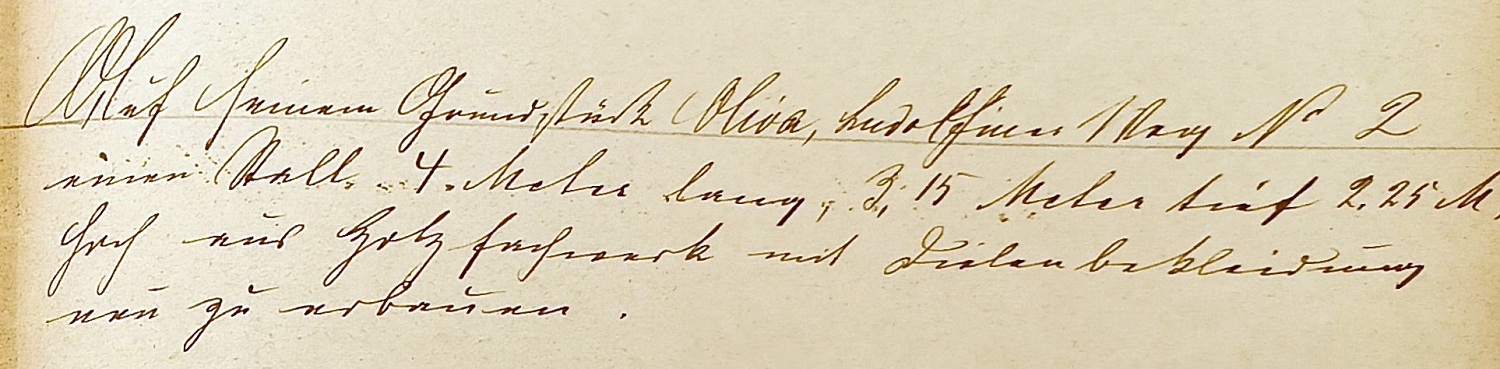 Auf seinem Grundstück Oliva, Ludolfiner Weg No 2
einen Stall 4. Meter lang, 3,15 Meter tief 2.25 M,
hoch aus Holzfachwerk mit Dielenbekleidung
neu zu erbauen.